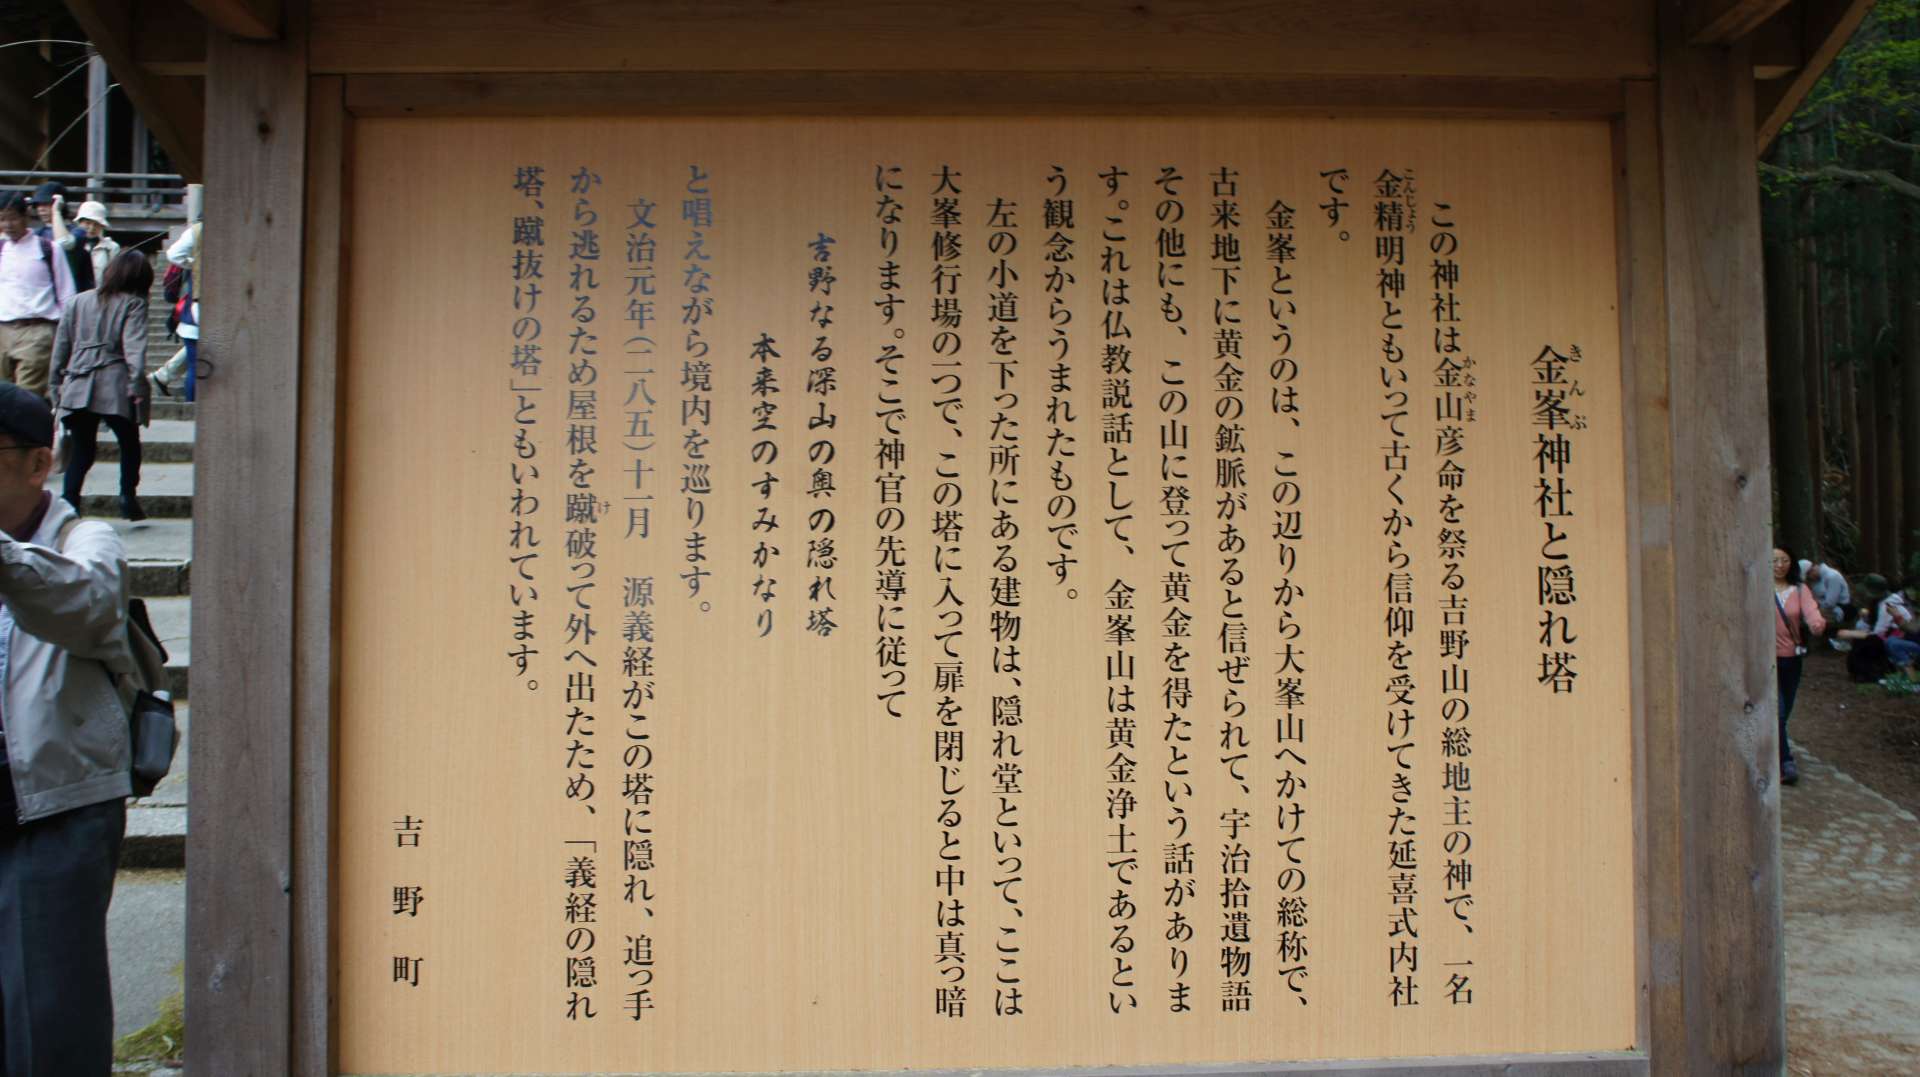 金峯神社と隠れ塔
この神社は金山彦命を祭る吉野山の総地主の神で、一名
金精明神ともいって古くから信仰を受けてきた延喜式内社
です。
金峯というのは、この辺りから大峯山へかけての総称で、
古来地下に黄金の鉱脈があると信ぜられて、宇治拾遺物語
その他にも、この山に登って黄金を得たという話がありま
す。これは仏教説話として、金峯山は黄金浄土であるとい
う観念からうまれたものです。
左の小道を下った所にある建物は、隠れ堂といって、ここは
大峯修行場の一つで、この塔に入って扉を閉じると中は真っ暗
になります。そこで神官の先導に従って
吉野なる深山の奥の隠れ塔
本来空のすみかなり
と唱えながら境内を巡ります。
文治元年(一一八五)十一月　源義経がこの塔に隠れ、追っ手
から逃れるため屋根を蹴破って外へ出たため、「義経の隠れ
塔、蹴抜けの塔」ともいわれています。
吉野町